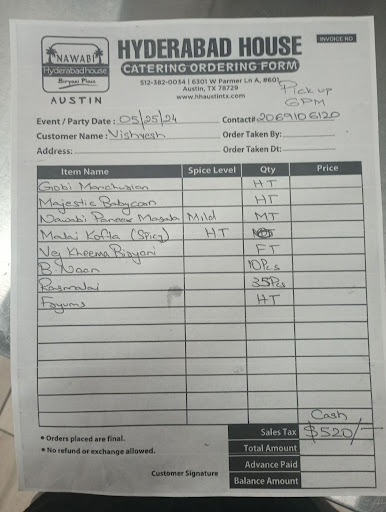 INVOICE NO
NAWABI
Hyderabad house
Biryani Place
AUSTIN
HYDERABAD HOUSE
CATERING ORDERING FORM
512-382-0034 | 6301 W Parmer Ln A, #601,
Austin, TX 78729
www.hhaustintx.com
Pick up
6PM
Event / Party Date : 05/25/24 Contact# 2069106120
Customer Name : Vishvesh Order Taken By:
Address: Order Taken Dt:
Item Name Spice Level Qty Price
Gobi Manchurian HT
Majestic Babycorn HT
Nawabi Paneer Masala Mild MT
Malai Kofta (Spicy) HT
Veg Kheema Biryani FT
B. Naan 10Pcs
Rasmalai 35Pcs
HT
Cash
Sales Tax $520/-
• Orders placed are final.
Total Amount
• No refund or exchange allowed.
Advance Paid
Customer Signature
Balance Amount